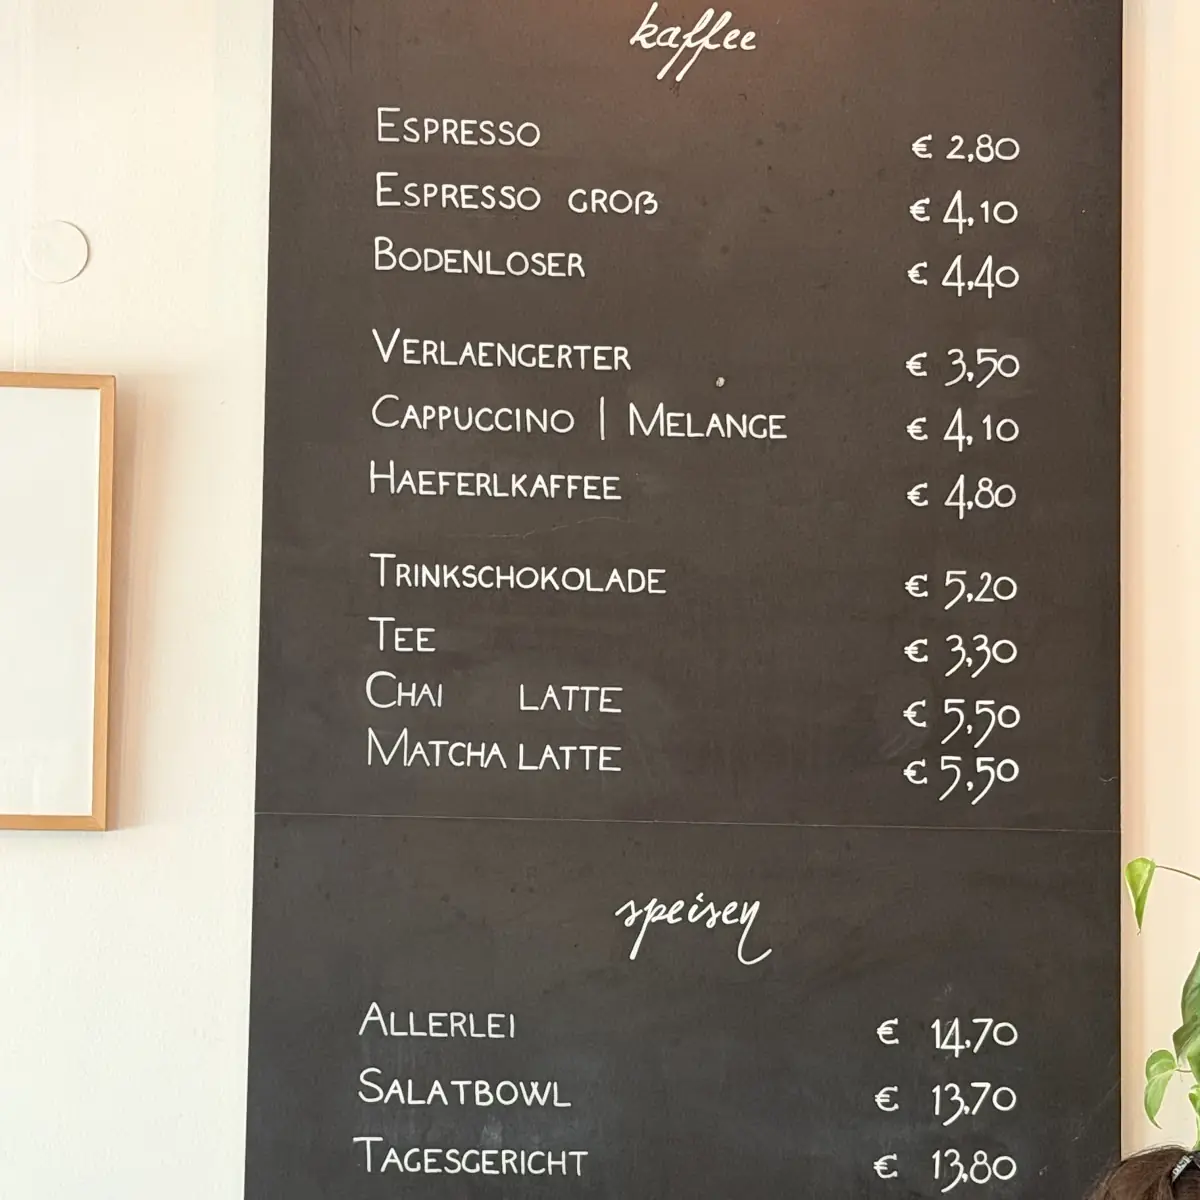 kaffee
ESPRESSO € 2,80
ESPRESSO GROß € 4,10
BODENLOSER € 4,40
VERLAENGERTER € 3,50
CAPPUCCINO | MELANGE € 4,10
HAEFERLKAFFEE € 4,80
TRINKSCHOKOLADE € 5,20
TEE € 3,30
CHAI LATTE € 5,50
MATCHA LATTE € 5,50
speisen
ALLERLEI € 14,70
SALATBOWL € 13,70
TAGESGERICHT € 13,80